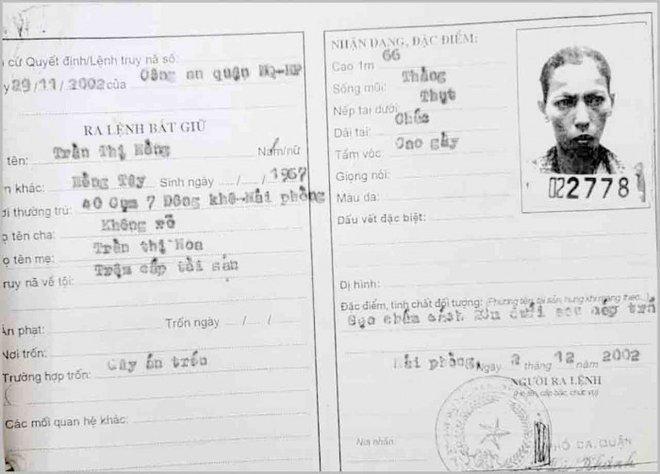 cứ Quyết định/Lệnh truy nã số:
29/11/2002 của Công an quận NQ-HP
RA LỆNH BẮT GIỮ
tên: Trần Thị Hồng Nam/nữ
khác: Hồng Tây Sinh ngày / / 1967
thường trú: 40 Cụm 7 Đông khê-Hải phòng
tên cha: Không rõ
tên mẹ: Trần thị Hoa
truy nã về tội: Trộm cắp tài sản
Án phạt: Trốn ngày / /
Nơi trốn:
Trường hợp trốn: Gây án trốn
Các mối quan hệ khác:
NHẬN DẠNG, ĐẶC ĐIỂM:
Cao 1m 66
Sống mũi: Thẳng
Nếp tai dưới: Thụt
Dái tai: Chúc
Tầm vóc: Cao gầy
Giọng nói:
Màu da:
Dấu vết đặc biệt:
Dị hình:
Đặc điểm, tính chất đối tượng: (Phương tiện, tài sản, hung khí mang theo...)
Sẹo chấm cách 2cm dưới sau mép trái
Hải phòng, Ngày 2 tháng 12 năm 2002
NGƯỜI RA LỆNH
(Họ tên, cấp bậc, chức vụ)
Nơi nhận:
PHÓ CA.QUẬN
022778